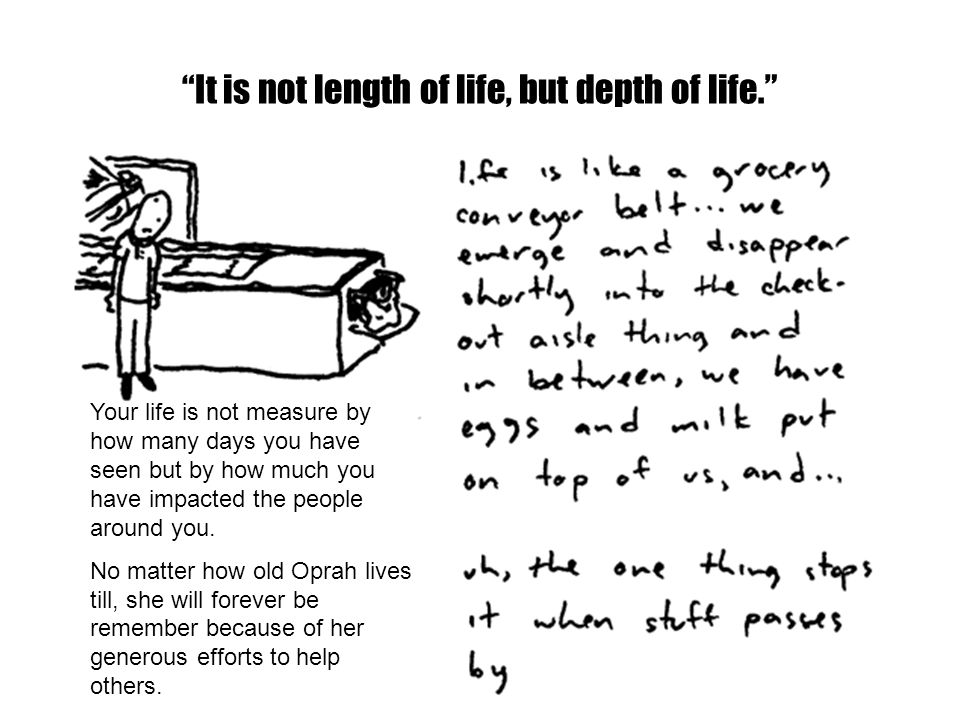 “It is not length of life, but depth of life.”
life is like a grocery
conveyor belt... we
emerge and disappear
shortly into the check-
out aisle thing and
in between, we have
eggs and milk put
on top of us, and...
uh, the one thing stops
it when stuff passes
by
Your life is not measure by
how many days you have
seen but by how much you
have impacted the people
around you.
No matter how old Oprah lives
till, she will forever be
remember because of her
generous efforts to help
others.